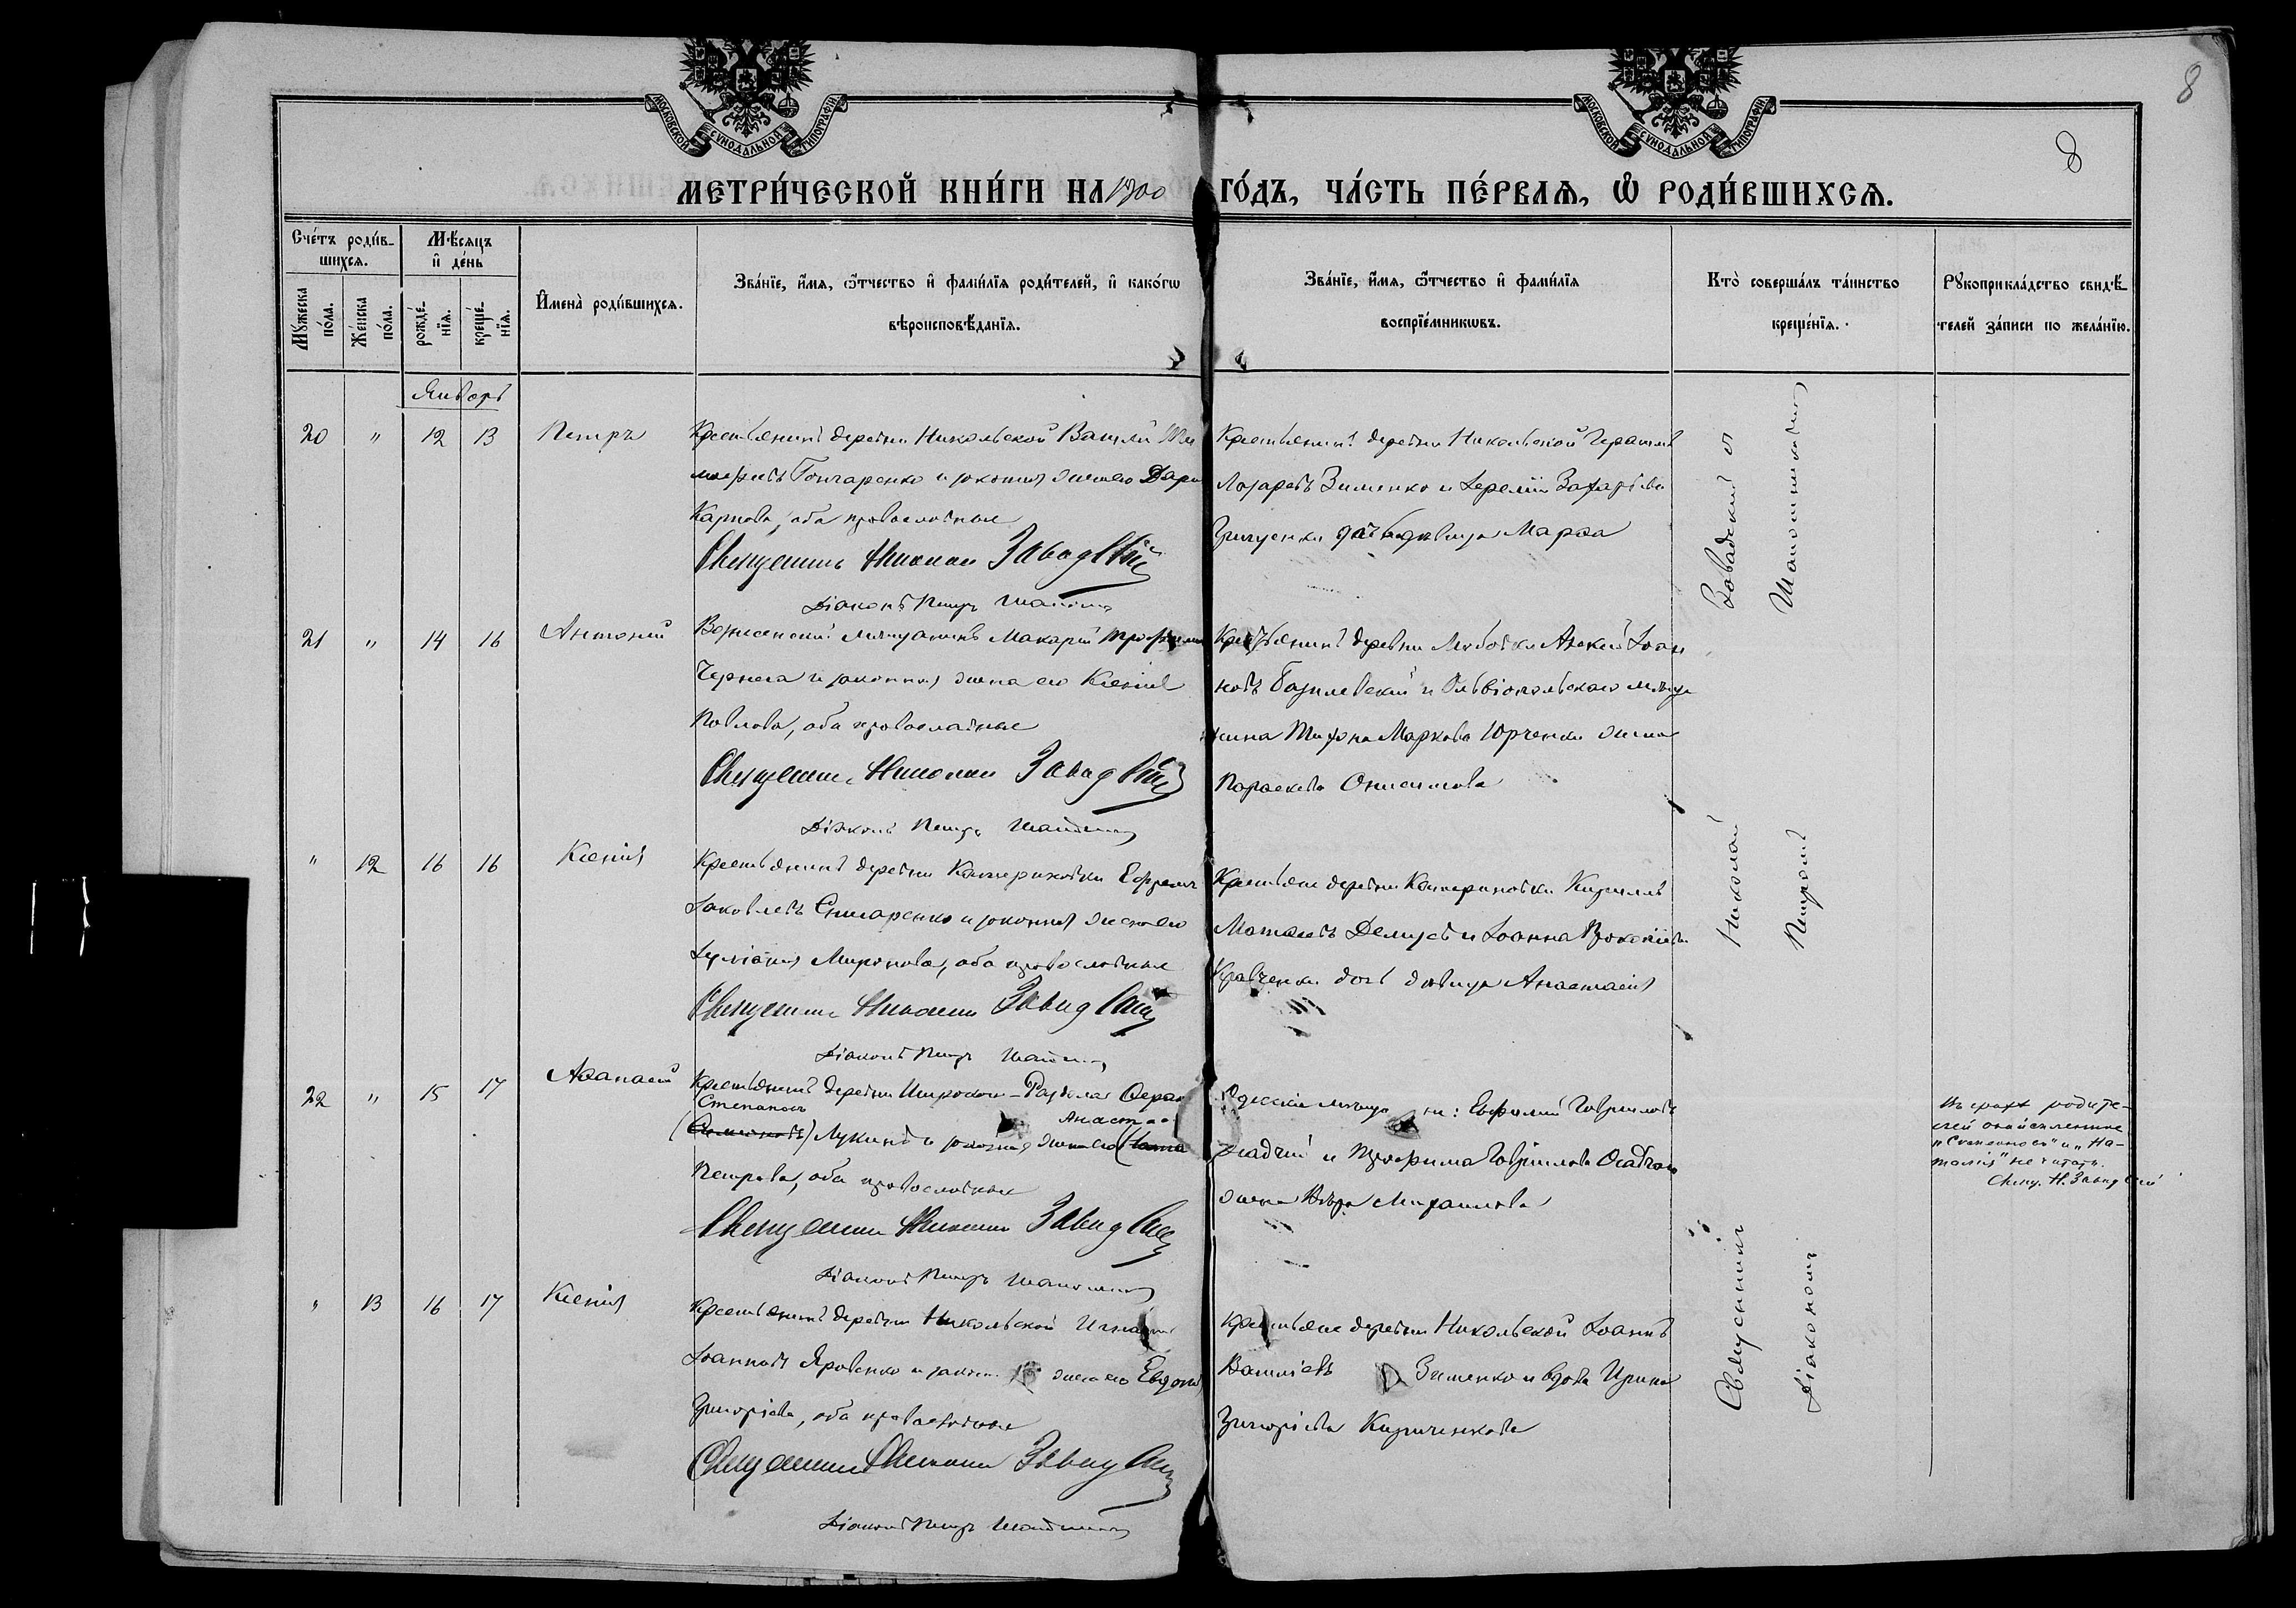 8
8
МОСКОВСКОЙ СѴНОДАЛЬНОЙ ТИПОГРАФІИ
МОСКОВСКОЙ СѴНОДАЛЬНОЙ ТИПОГРАФІИ
МЕТРИ́ЧЕСКОЙ КНИ́ГИ НА 1900 ГО́ДЪ, ЧА́СТЬ ПЕ́РВАЯ, Ѿ РОДИ́ВШИХСЯ.
Сче́тъ роди́в-
шихся.
Мꙋжеска по́ла.
Же́нска по́ла.
Мѣ́сяцъ
и҆ де́нь
рожде́-
нїя.
креще́-
нїя.
И҆мена̀ роди́вшихся.
Зва́нїе, и҆́мя, ѻ҆́тчество и҆ фами́лїя роди́телей, и҆ како́гѡ
вѣроисповѣ́данїя.
Зва́нїе, и҆́мя, ѻ҆́тчество и҆ фами́лїя
воспрїе́мникѡвъ.
Кто̀ соверша́лъ та́инство
креще́нїя.
Рꙋкоприкла́дство свидѣ́-
телей за́писи по жела́нїю.
Январь
20 " 12 13 Петръ
Крестьянинъ деревни Никольской Василій
Гончаренко и законная жена его Дарія
Карпова, оба православные
Священникъ Николай Завадскій
Діаконъ Петръ
Крестьянинъ деревни Никольской Герасимъ
Лазаревъ Зименко и Іереміи Захаріева
Гриценки дочь девица Марѳа
21 " 14 16 Антоній
Вознесенскій мѣщанинъ Макарій Трофимовъ
Чернега и законная жена его Ксенія
Павлова, оба православные
Священникъ Николай Завадскій
Діаконъ Петръ
Крестьянинъ деревни Любовки Алексій Іоан
новъ Базилевскій и Ольвіопольскаго мѣща
нина Маркова Юрченки жена
Параскева Онисимова
" 12 16 16 Ксенія
Крестьянинъ деревни Катериновки Ефремъ
Іаковлевъ Снисаренко и законная жена его
Іуліанія Миронова, оба православные
Священникъ Николай Завадскій
Діаконъ Петръ
Крестьяне деревни Катериновки Кириллъ
Матвеевъ и Іоанна Прокопіева
Кравченки дочь девица Анастасія
22 " 15 17 Аѳанасій
Крестьянинъ деревни Широкой-
Степановъ
Анаста
Лукинъ и законная жена его
Петрова, оба православные
Священникъ Николай Завадскій
Діаконъ Петръ
Одесскіе Евфимій Гавриловъ
Осадчій и Трофима Гаврилова Осадчаго
жена Вѣра Михаилова
Въ графѣ родите-
лей
"Степановъ" и "На-
талія" не читать.
Свящ. Н. Завадскій
" 13 16 17 Ксенія
Крестьянинъ деревни Никольской Игнатій
Іоанновъ Яровенко и законная жена его Евдокія
Григоріева, оба православные
Священникъ Николай Завадскій
Діаконъ Петръ
Крестьяне деревни Никольской Іоаннъ
Василіевъ Зименко и вдова Ирина
Григоріева Кириченкова
Священникъ Николай Завадскій и
Діакономъ Петромъ